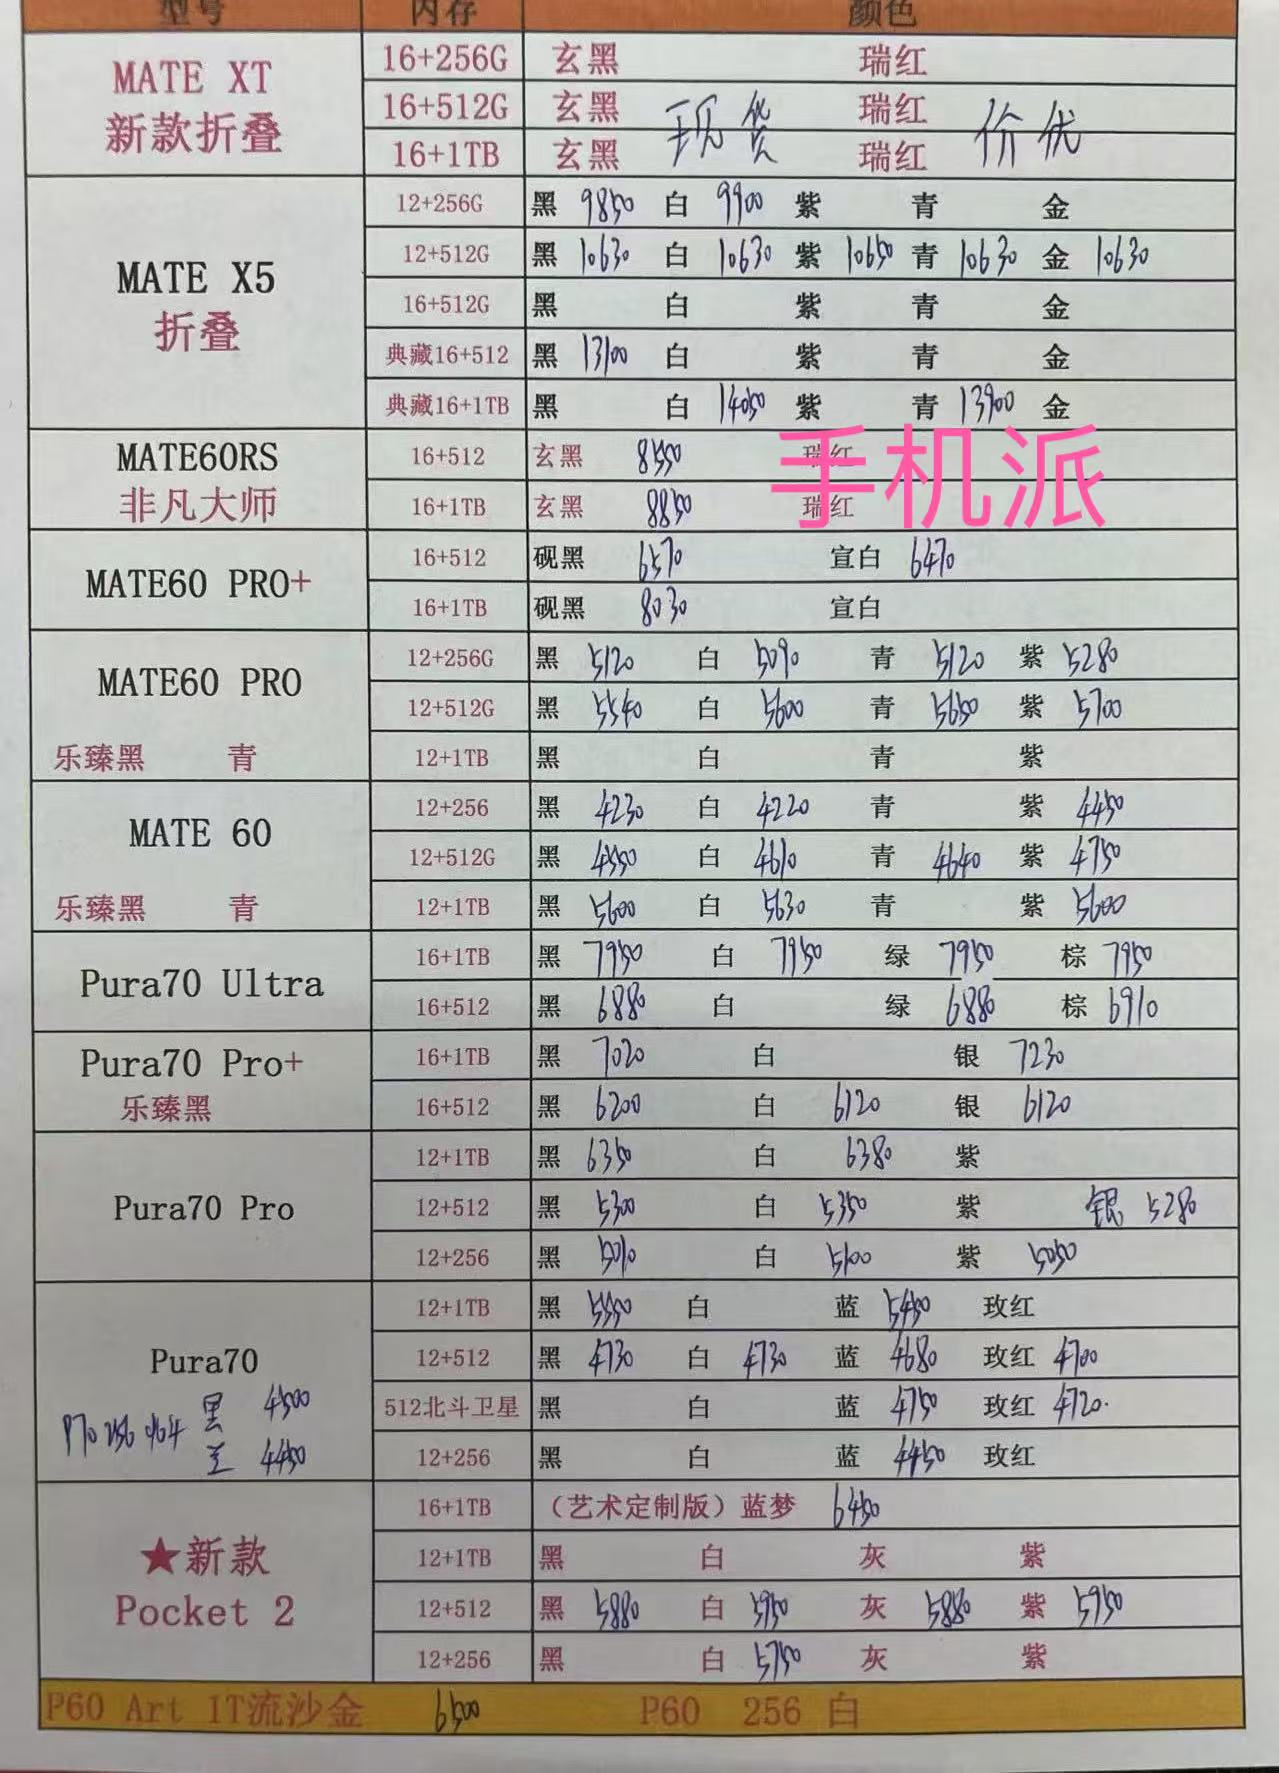 型号 内存 颜色
MATE XT
新款折叠
16+256G 玄黑 瑞红
16+512G 玄黑 瑞红
现货 价优
16+1TB 玄黑 瑞红
MATE X5
折叠
12+256G 黑 9850 白 9900 紫 青 金
12+512G 黑 10630 白 10630 紫 10650 青 10630 金 10630
16+512G 黑 白 紫 青 金
典藏16+512 黑 13100 白 紫 青 金
典藏16+1TB 黑 白 14050 紫 青 13900 金
手机派
MATE60RS
非凡大师
16+512 玄黑 8550 瑞红
16+1TB 玄黑 8850 瑞红
MATE60 PRO+
16+512 砚黑 6570 宣白 6470
16+1TB 砚黑 8030 宣白
MATE60 PRO
乐臻黑 青
12+256G 黑 5120 白 5090 青 5120 紫 5280
12+512G 黑 5540 白 5600 青 5650 紫 5700
12+1TB 黑 白 青 紫
MATE 60
乐臻黑 青
12+256 黑 4230 白 4220 青 紫 4450
12+512G 黑 4550 白 4610 青 4640 紫 4750
12+1TB 黑 5600 白 5630 青 紫 5600
Pura70 Ultra
16+1TB 黑 7950 白 7950 绿 7950 棕 7950
16+512 黑 6880 白 绿 6880 棕 6910
Pura70 Pro+
乐臻黑
16+1TB 黑 7020 白 银 7230
16+512 黑 6200 白 6120 银 6120
Pura70 Pro
12+1TB 黑 6350 白 6380 紫
12+512 黑 5300 白 5350 紫 银 5280
12+256 黑 5010 白 5100 紫 5050
Pura70
P70 256 黑 4500
兰 4450
12+1TB 黑 5550 白 蓝 5450 玫红
12+512 黑 4730 白 4730 蓝 4680 玫红 4700
512北斗卫星 黑 白 蓝 4750 玫红 4720.
12+256 黑 白 蓝 4450 玫红
★新款
Pocket 2
16+1TB （艺术定制版）蓝梦 6450
12+1TB 黑 白 灰 紫
12+512 黑 5880 白 5950 灰 5880 紫 5950
12+256 黑 白 5750 灰 紫
P60 Art 1T流沙金 6500 P60 256 白